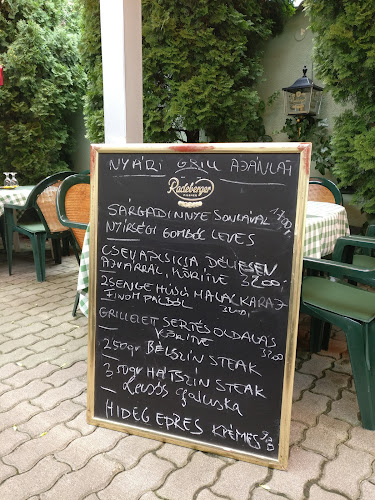 NYÁRI GRILL AJÁNLAT
Radeberger
PILSNER
SÁRGADINNYE SONKÁVAL 1700,-
NYÍRSÉGI GOMBÓC LEVES
CSEVAPCSICSA DÉLIESEN
AJVÁRRAL, KÖRITVE 3200,-
ZSENGE HÚSÚ MALACKARAJ
FINOM PÁCBÓL
GRILLEZETT SERTÉS OLDALAS
KÖRITVE 3200
250gr BÉLSZÍN STEAK
350gr HÁTSZÍN STEAK
Levés Galuska
HIDEG EPRES KRÉMES